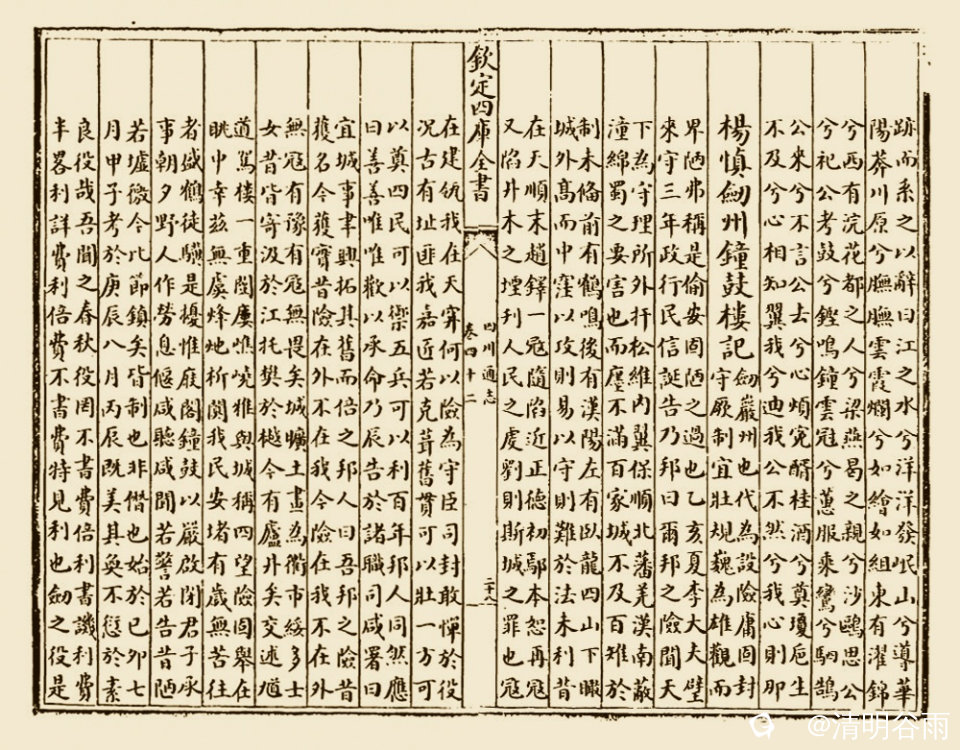 跡而系之以辭曰江之水兮洋洋發岷山兮導華
陽莽川原兮膴膴雲霞爛兮如繪如組東有濯錦
兮西有浣花都之人兮梁燕曷之親兮沙鷗思公
兮祀公考鼓兮鏗鳴鐘雲冠兮蕙服乘鸞兮駟鵠
公來兮不言公去兮心煩寃醑桂酒兮奠瓊巵生
不及兮心相知翼我兮迪我公不然兮我心則那
楊慎劒州鐘鼓樓記
劒嚴州也代為設險庸固封
守厥制宜壯規巍為雄觀而
界陋弗稱是偷安固陋之過也乙亥夏李大夫壁
來守三年政行民信誕告乃邦曰爾邦之險聞天
下為守理所外扞松維内翼保順北藩羌漢南蔽
潼綿蜀之要害也而廛不滿百家城不及百雉於
制未備前有鶴鳴後有漢陽左有臥龍四山下瞰
城外髙而中窪以攻則易以守則難於法未利昔
在天順末趙鐸一冦隨陷近正德初鄢本恕再冦
又陷井木之堙刋人民之虔劉則斯城之罪也冦
欽定四庫全書
四川通志
卷四十二
在建紈我在天穽何以險為守臣司封敢憚於役
況古有址匪我嘉匠若克葺舊貫可以壯一方可
以奠四民可以禦五兵可以利百年邦人同然應
曰善善唯唯歡以承命乃辰告於諸職司咸署曰
宜城事聿興拓其舊而倍之邦人曰吾邦之險昔
獲名今獲實昔險在外不在我今險在我不在外
無冦有豫有冦無畏矣城曠土畫為衢市綏多士
女昔皆寄汲於江托樊於樾今有廬井矣交述馗
道駕樓一重閣廔嶕嶢雅與城稱四望險固舉在
眺中幸茲無虞烽灺柝闃我民安堵有歲無苦往
者盛鶴徒驕是擾惟庪閣鐘鼓以嚴啟閉君子承
事朝夕野人作勞息偃咸聽咸聞若警若告昔陋
若墟㣲今比節鎮矣皆制也非僭也始於己卯七
月甲子考於庚辰八月丙辰既美具奐不愆於素
良役哉吾聞之春秋役罔不書費倍利書譏利費
半畧利詳費利倍費不書費特見利也劒之役是
@清明谷雨